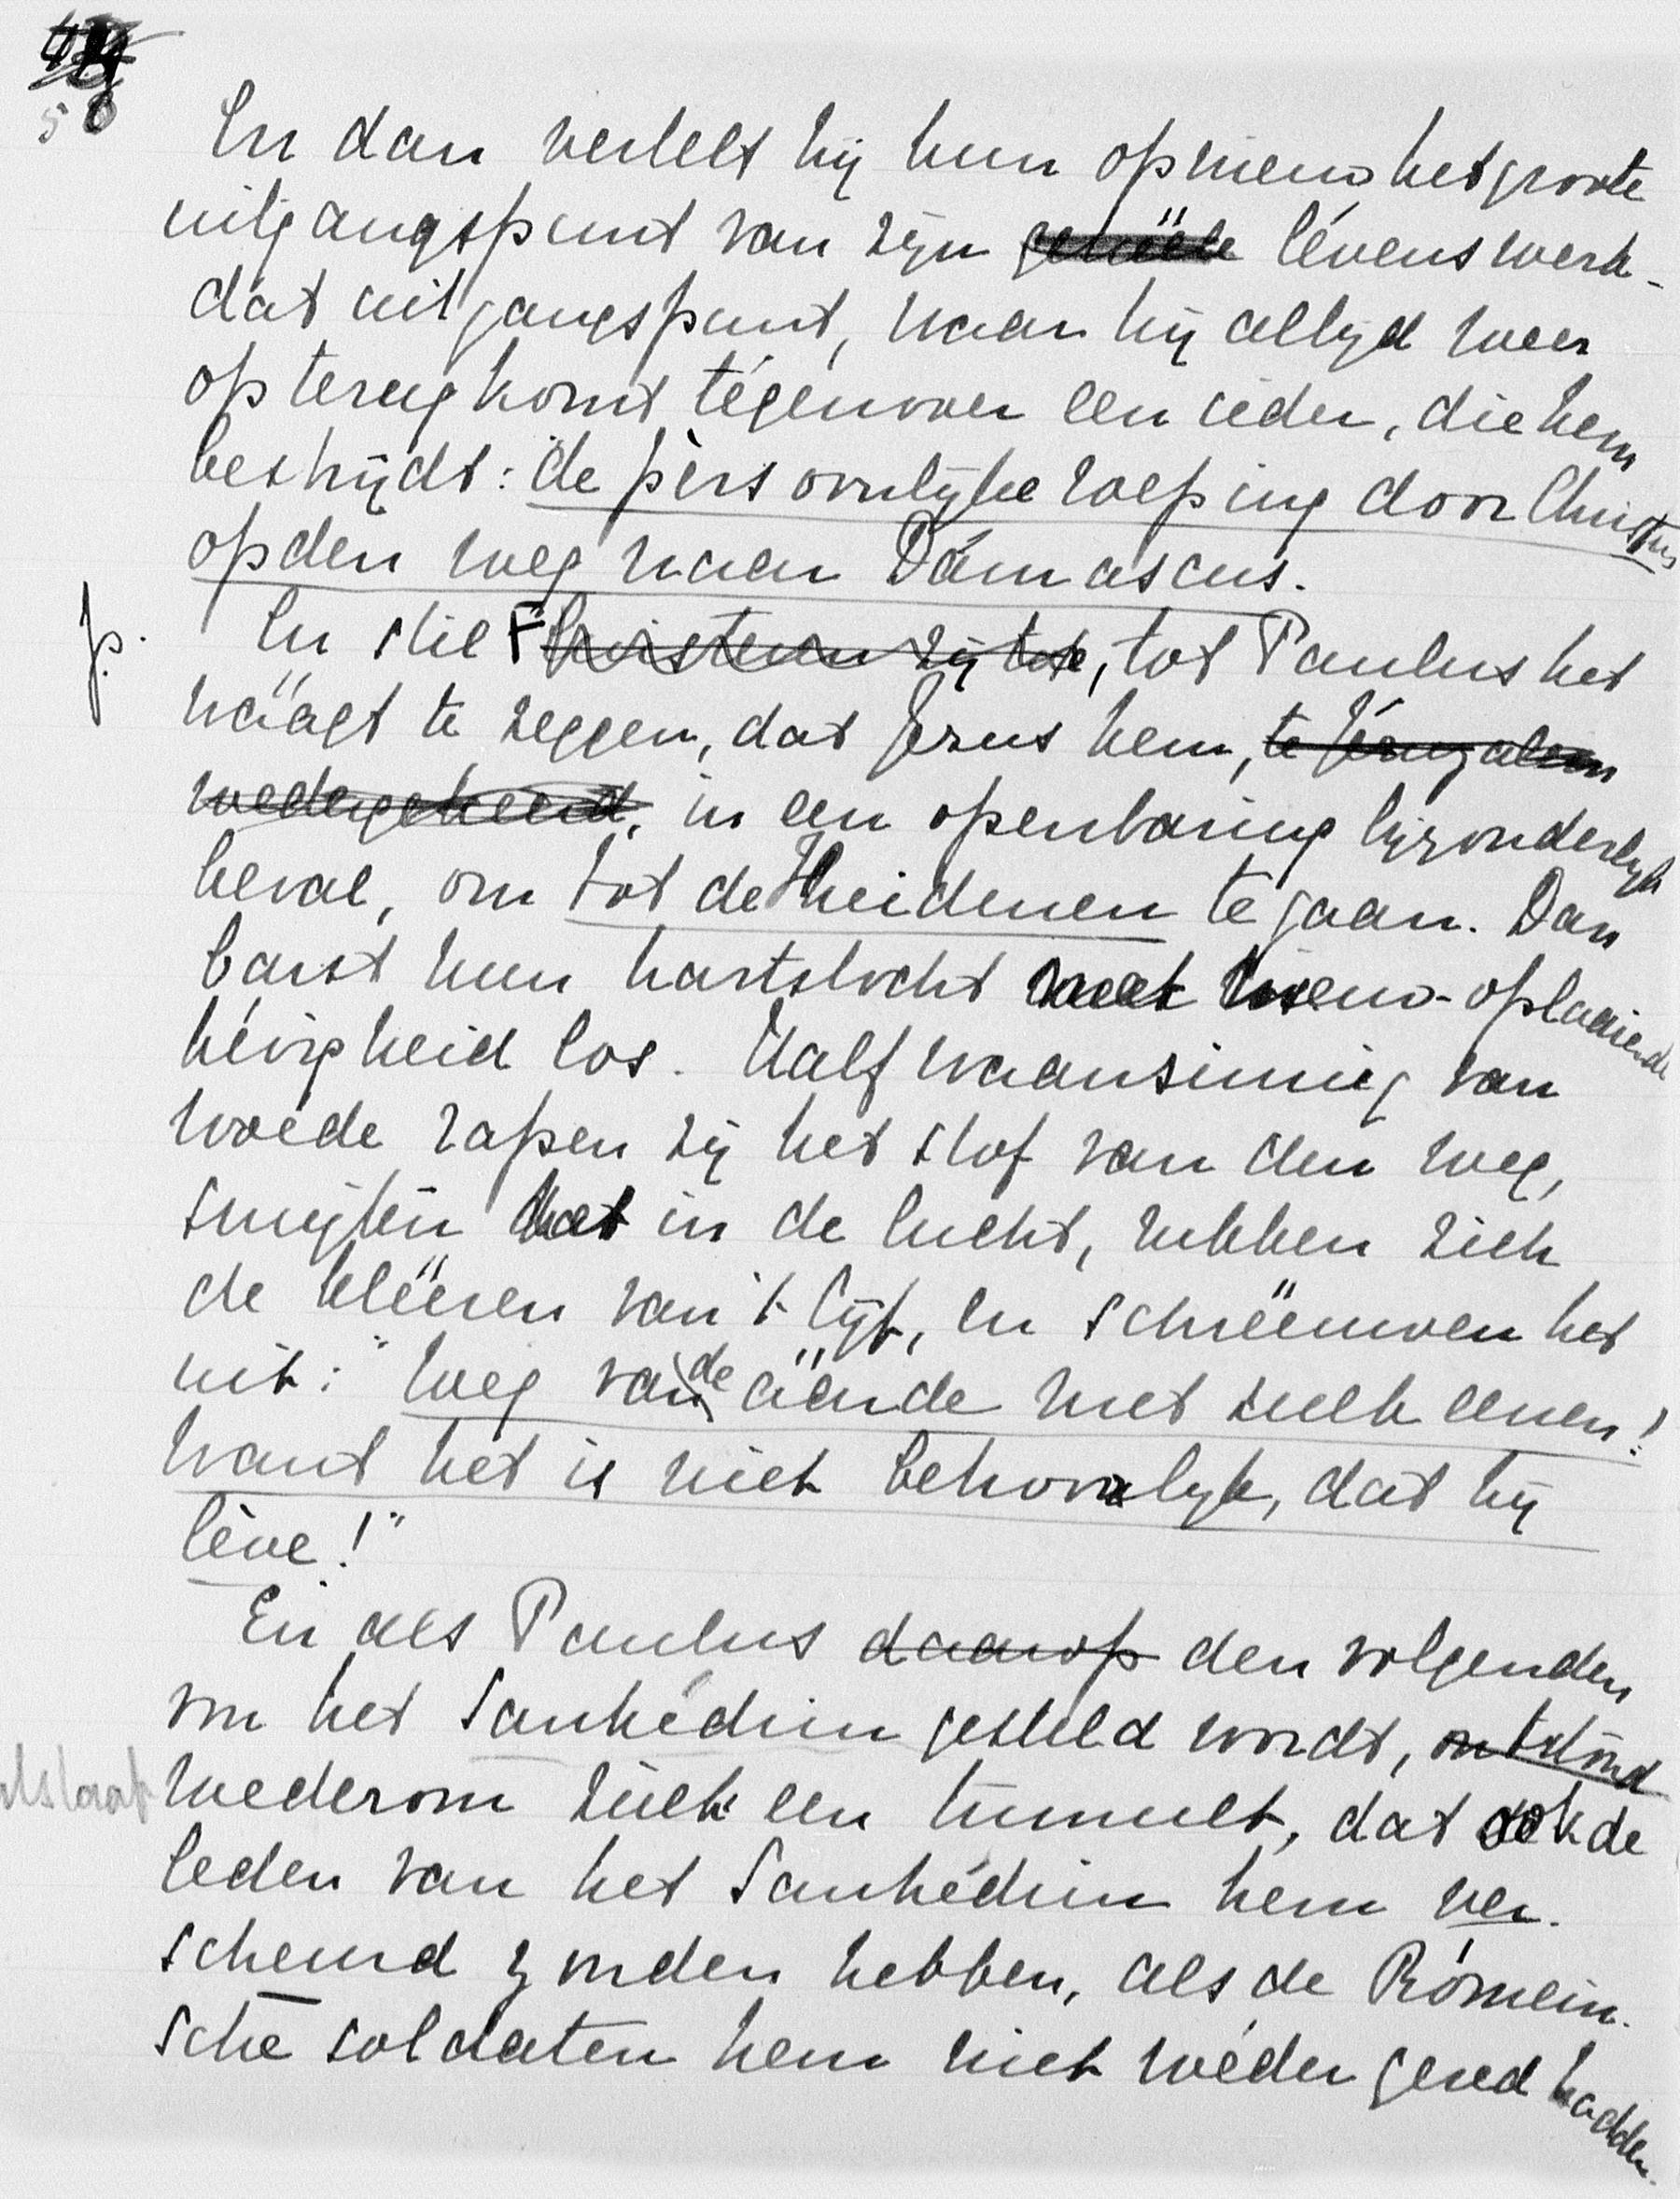 58
En dan vertelt hij hun opnieuw het groote
uitgangspunt van zijn geheele lévenswerk-
dát uitgangspunt, waar hij altijd weer
op terugkomt tégenover een ieder, die hem
bestrijdt: de pèrsoonlijke roeping door Christus
op den weg naar Dámascus.
p. En stil Christenen zij toe, tot Paulus het
wáágt te zeggen, dat Jezus hem, te Jéruzalem
wedergekeerd, in een openbaring bijzonderlijk
beval, om tot de Heidenen te gaan. Dan
barst hun hartstocht met nieuw-oplaaiende
hévigheid los. Half waanzinnig van
woede rapen zij het stof van den weg,
smijten het in de lucht, rukken zich
de kléeren van 't lijf, en schréeuwen het
uit: "Weg van de aarde met zulk eenen!
Want het is niet behoorlijk, dat hij
léve!"
En als Paulus daarop den volgenden
voor het Sanhédrin gesteld wordt, ontstond
ontstaat wederom zulk een tumult, dat ook de
leden van het Sanhédrin hem ver-
scheurd zouden hebben, als de Rómein-
sche soldaten hem niet wéder gered hadden.